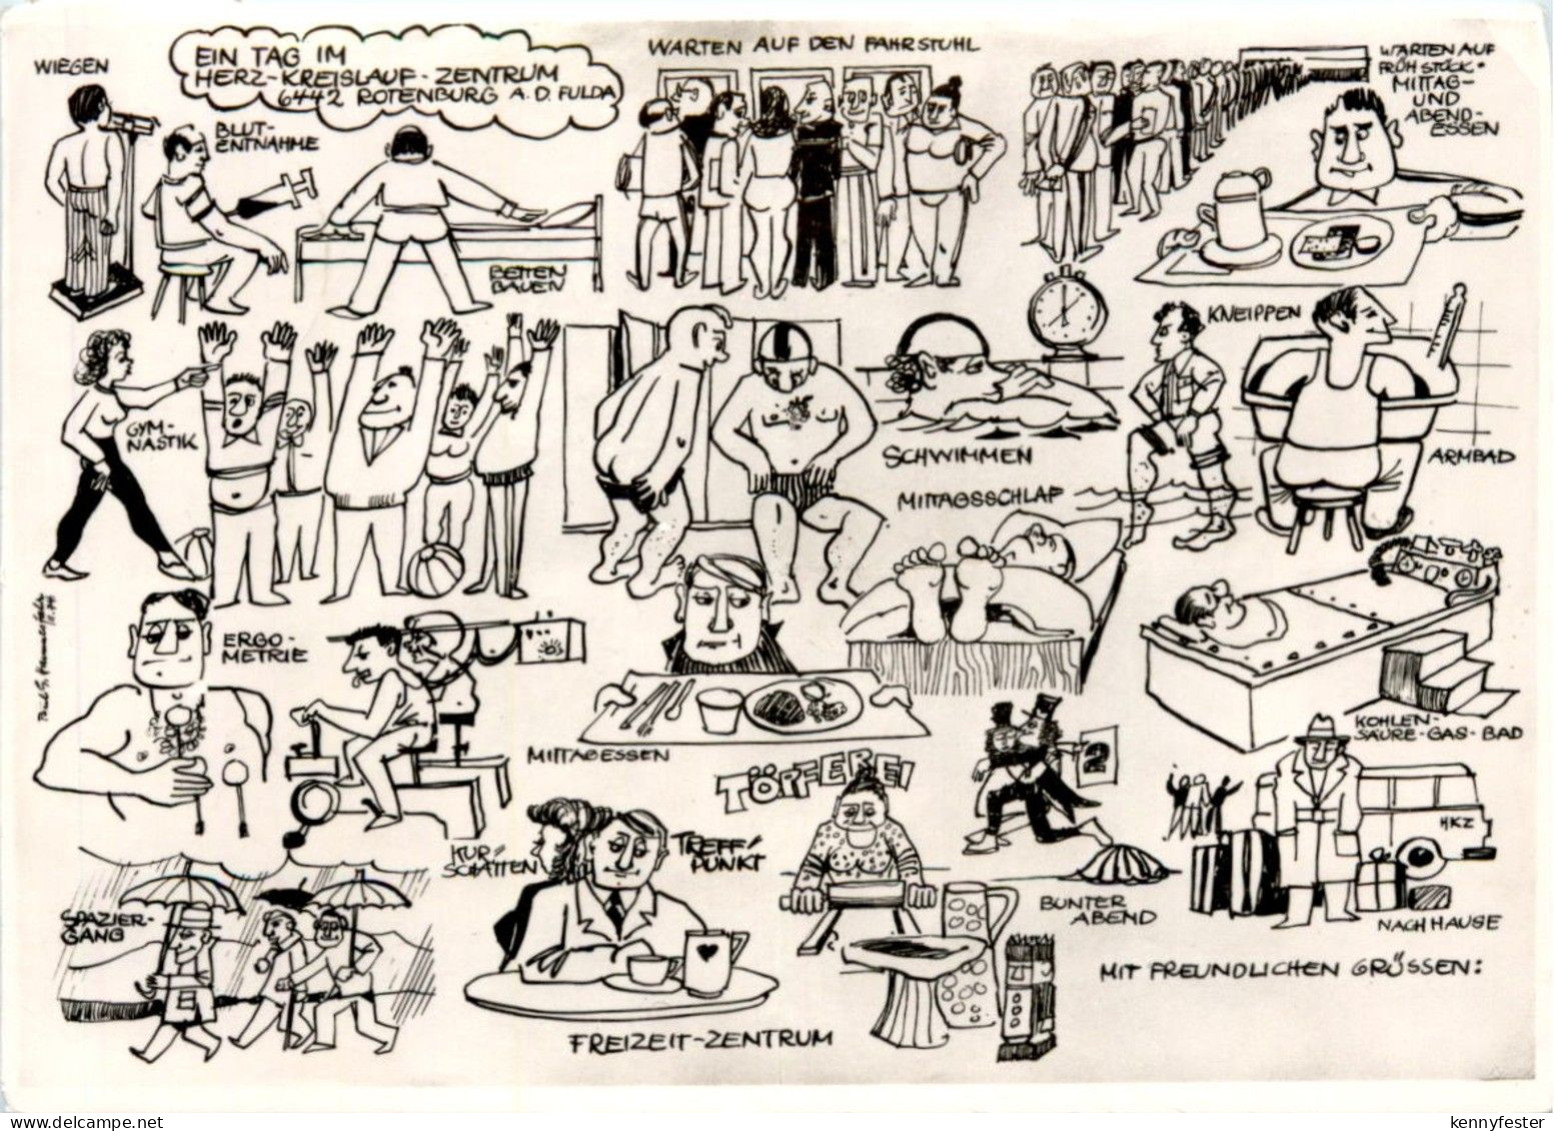 WIEGEN
EIN TAG IM
HERZ-KREISLAUF-ZENTRUM
6442 ROTENBURG A.D. FULDA
WARTEN AUF DEN FAHRSTUHL
WARTEN AUF
FRÜHSTÜCK-
MITTAG-
UND
ABEND-
ESSEN
BLUT-
ENTNAHME
BETTEN
BAUEN
KNEIPPEN
GYM-
NASTIK
SCHWIMMEN
ARMBAD
MITTAGSSCHLAF
ERGO-
METRIE
MITTAGESSEN
KOHLEN-
SÄURE-GAS-BAD
TÖPFEREI
2
HKZ
KUR-
SCHATTEN
TREFF-
PUNKT
SPAZIER-
GANG
BUNTER
ABEND
NACH HAUSE
MIT FREUNDLICHEN GRÜSSEN:
FREIZEIT-ZENTRUM
kennyfester